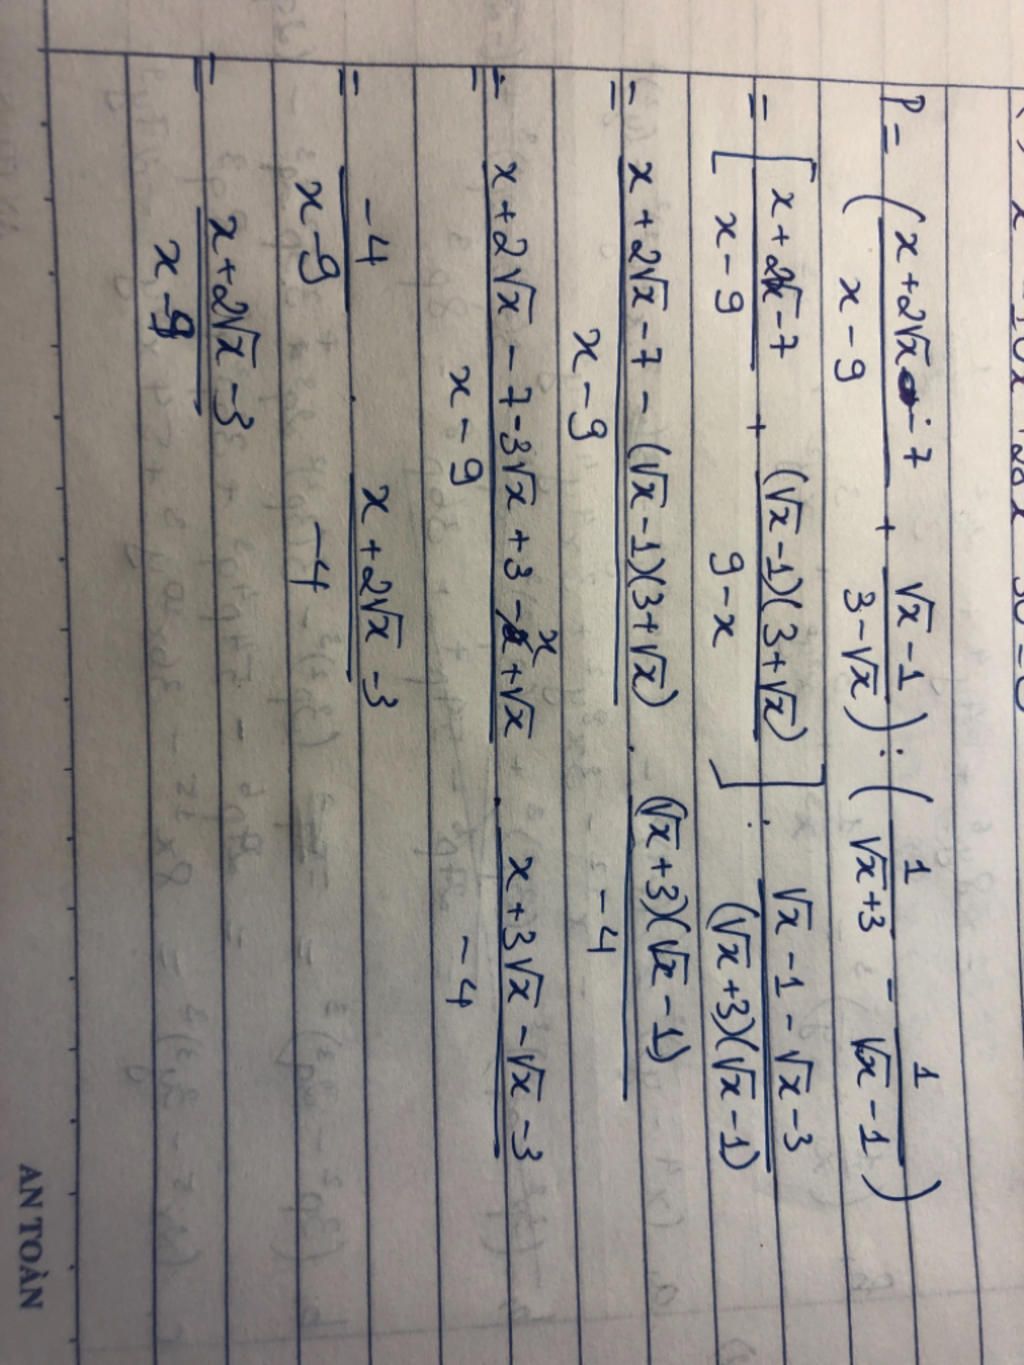 P = ( x + 2√x - 7 / x - 9 + √x - 1 / 3 - √x ) : ( 1 / √x + 3 - 1 / √x - 1 )
= [ x + 2√x - 7 / x - 9 + (√x - 1)(3 + √x) / 9 - x ] : √x - 1 - √x - 3 / (√x + 3)(√x - 1)
= x + 2√x - 7 - (√x - 1)(3 + √x) / x - 9 . (√x + 3)(√x - 1) / - 4
= x + 2√x - 7 - 3√x + 3 - x + √x / x - 9 . x + 3√x - √x - 3 / - 4
= - 4 / x - 9 . x + 2√x - 3 / - 4
= x + 2√x - 3 / x - 9
AN TOÀN